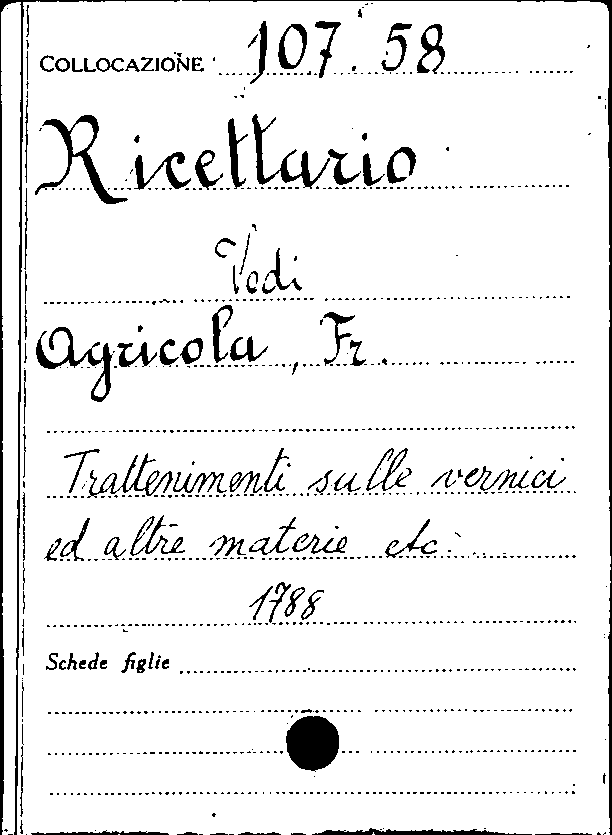 COLLOCAZIONE 107. 58
Ricettario
Vedi
Agricola, Fr.
Trattenimenti sulle vernici
ed altre materie etc.
1788
Schede figlie